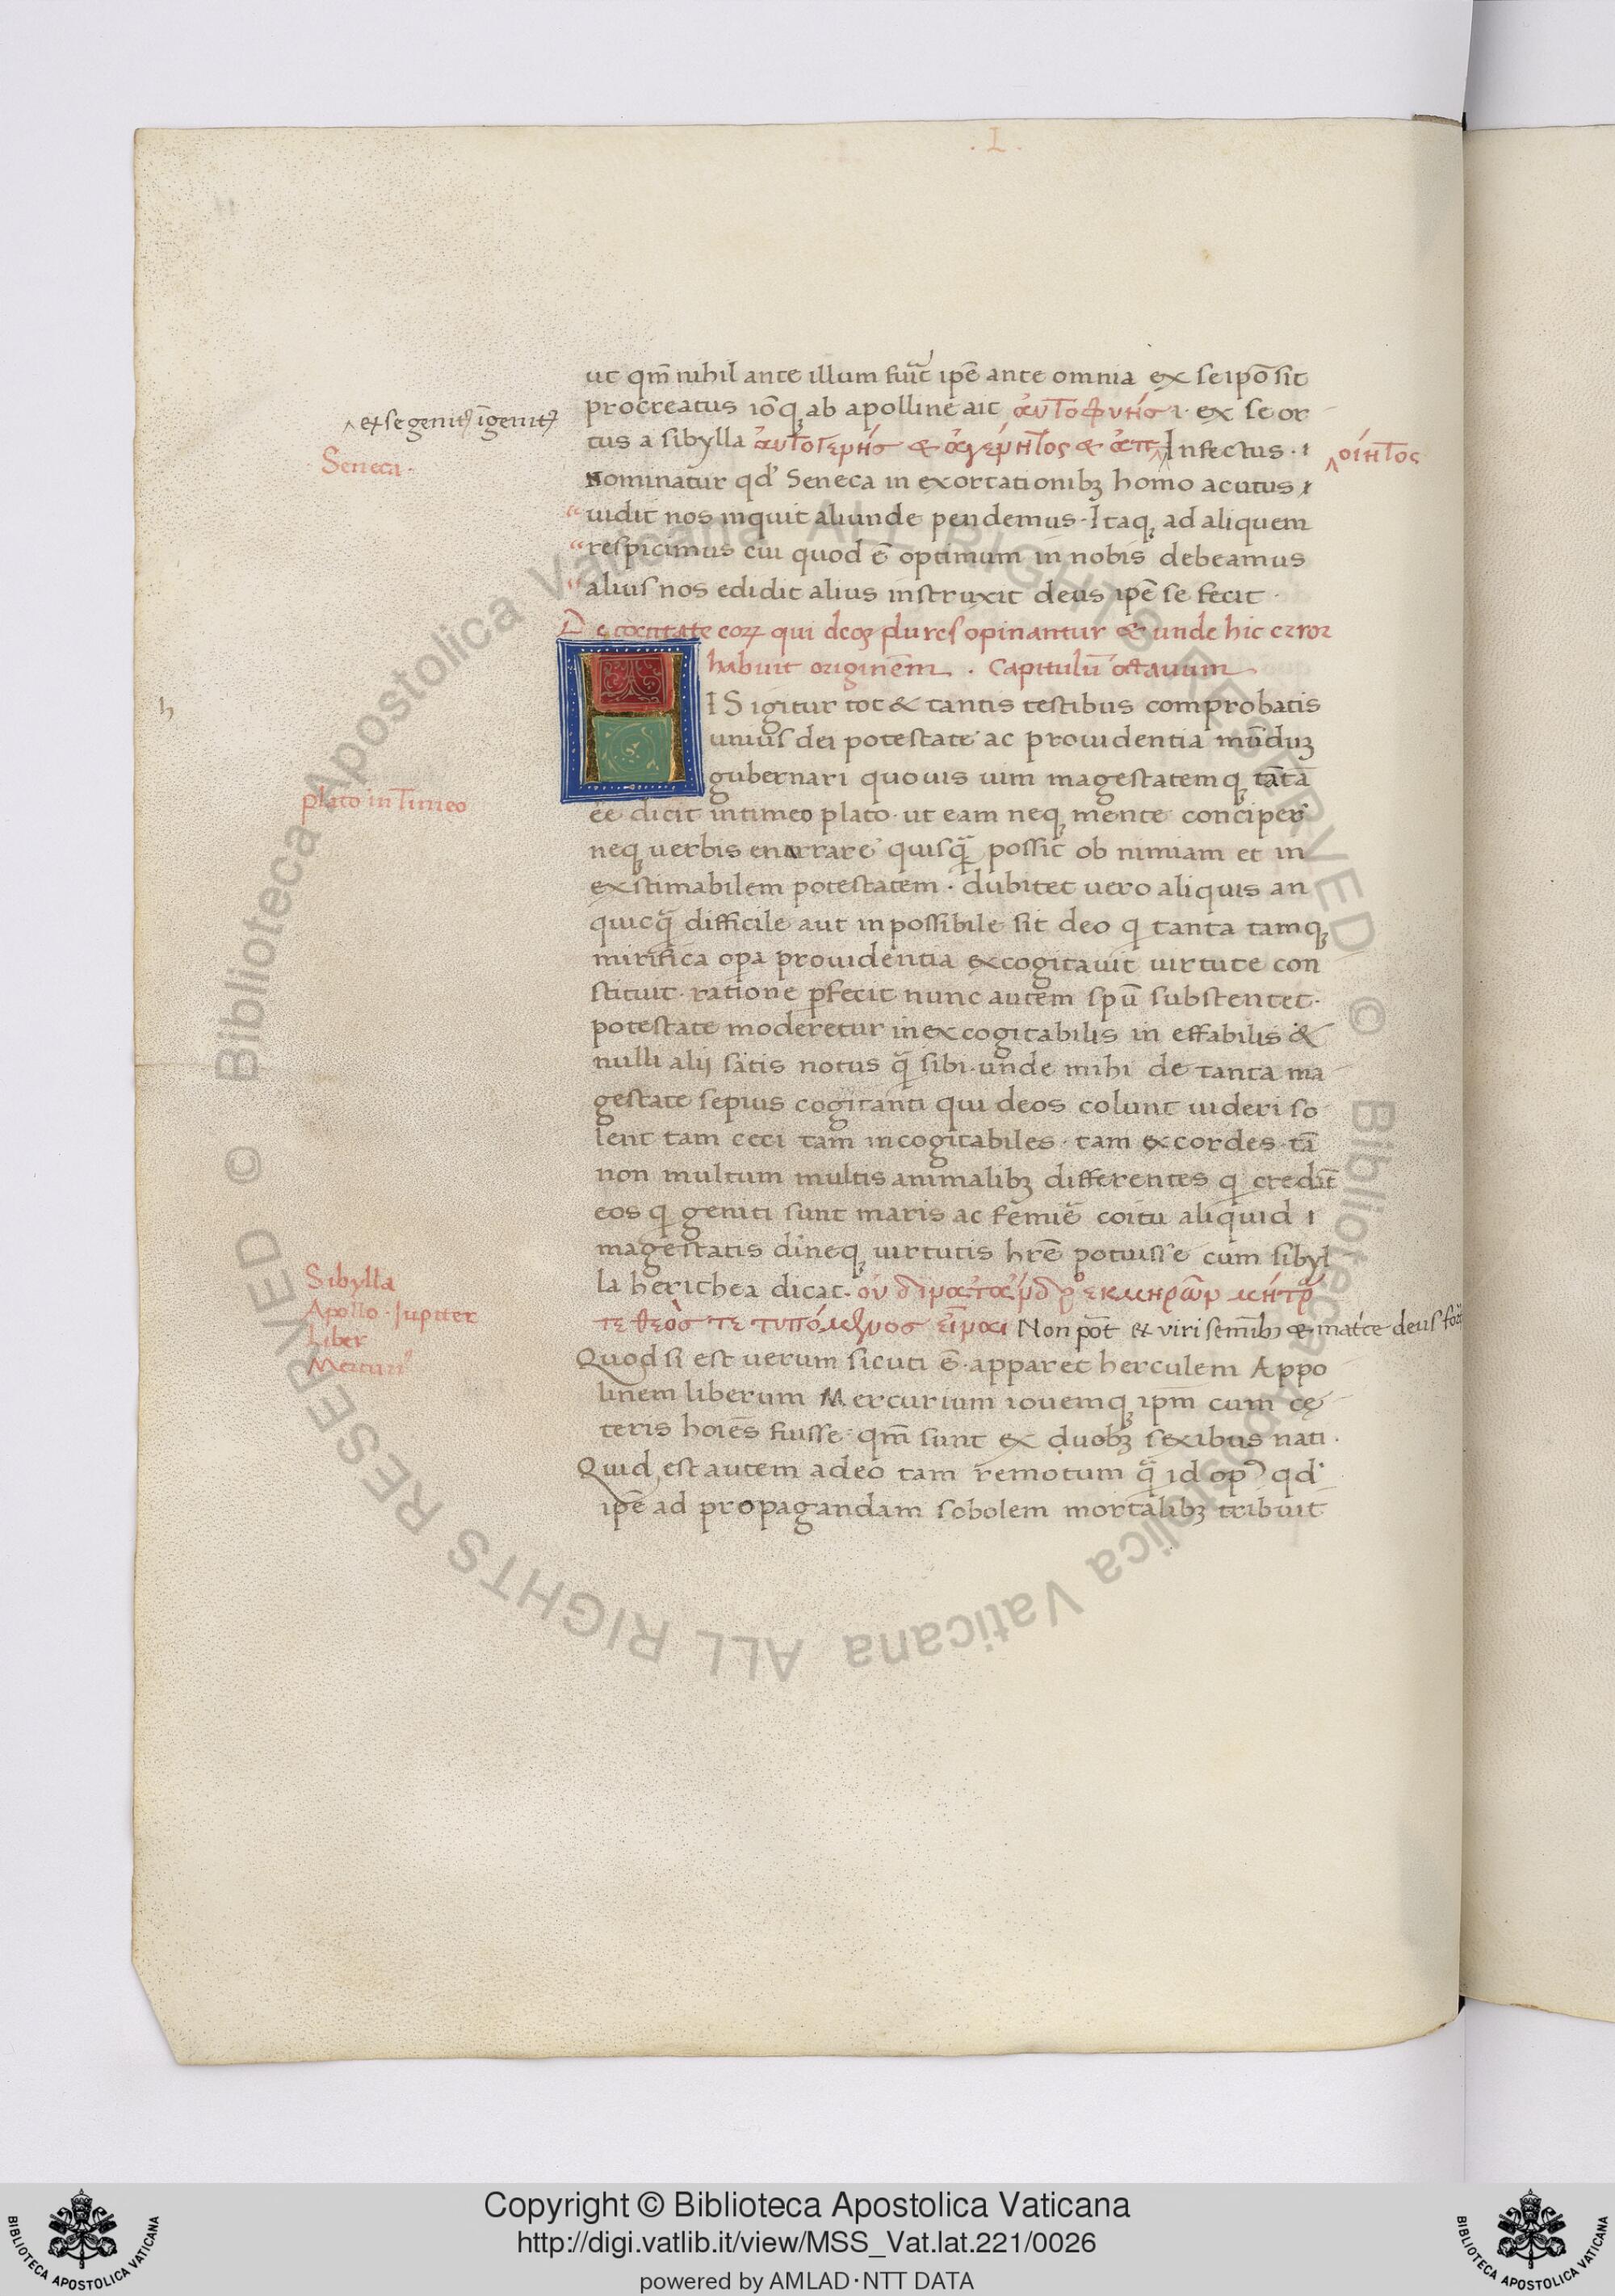 . I .
ut qm̄ nihil ante illum fuit ip̄e ante omnia ex se ip̄o sit
procreatus iō q; ab apolline ait ἀυτοφυής .i. ex se or
^ ex se genitꝰ īgenitꝰ
tus a sibylla ἀυτογενής & ἀγένητος & ἀπ^ Infectus .
^ οίητος
Seneca .
nominatur qd' Seneca in exortationibꝫ homo acutus
“ uidit nos inquit aliunde pendemus . Itaq; ad aliquem
“ respicimus cui quod ē optimum in nobis debeamus
“ alius nos edidit alius instruxit deus ip̄e se fecit .
qui deos plures opinantur & unde hic error
habuit originem . Capitulū octauum
h
HIS igitur tot & tantis testibus comprobatis
unius dei potestate ac prouidentia mūdum
gubernari quouis uim magestatemq; tātā
plato in Timeo
ēe dicit in timeo plato . ut eam neq; mente conciper
neq; uerbis enarrare quisq̄ possit ob nimiam et in
existimabilem potestatem . dubitet uero aliquis an
quicq̄ difficile aut inpossibile sit deo q tanta tamq;
mirifica opa prouidentia excogitauit uirtute con
stituit . ratione pfecit nunc autem spū substentet .
potestate moderetur inexcogitabilis in effabilis &
nulli alij satis notus q̄ sibi . unde mihi de tanta ma
gestate sepius cogitanti qui deos colunt uideri so
lent tam ceci tam incogitabiles . tam excordes . tā
non multum multis animalibꝫ differentes q credūt
eos q geniti sunt maris ac femine coitu aliquid
magestatis dineq; uirtutis hr̄e potuisse cum sibyl
Sibylla
Apollo . Jupiter
Liber
Mercuriꝰ
la herichea dicat . ου δύναται ἀνδρὸς εκ μηρῶν μήτρ
τε θεὸς τετυπόμενος εἶναι Non pōt ex viri semībꝫ & mat'ce deus
Quod si est uerum sicuti ē . apparet herculem Appo
linem liberum Mercurium iouemq; ipm̄ cum cę
teris hoīes fuisse qm̄ sunt ex duobꝫ sexibus nati .
Quid est autem adeo tam remotum q̄ id opꝰ qd'
ip̄e ad propagandam sobolem mortalibꝫ tribuit
© Biblioteca Apostolica Vaticana ALL RIGHTS RESERVED © Biblioteca Apostolica Vaticana ALL RIGHTS RESERVED
Copyright © Biblioteca Apostolica Vaticana
http://digi.vatlib.it/view/MSS_Vat.lat.221/0026
powered by AMLAD·NTT DATA
BIBLIOTECA APOSTOLICA VATICANA
BIBLIOTECA APOSTOLICA VATICANA